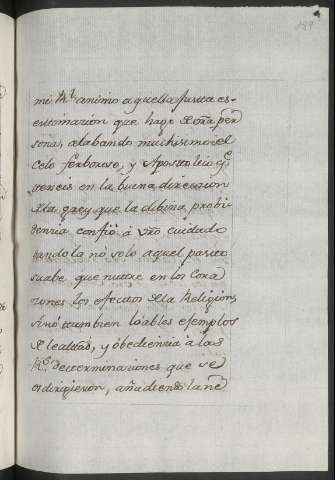 mi Rl. animo aquella Justa es-
estomacion que hago de vra per
sona, alabando muchisimo el
Celo ferboroso, y Apostolico qe.
teneis en la buena direccion
de la grey que la dibina probi
dencia confió á vro cuidado
dandola nó solo aquel pasto
suabe que nutre en los Cora
zones los efectos de la Religion,
sinó tambien loables ejemplos
de lealtad, y obediencia á las
Rs. determinaciones que se
os dirigieron, añadiendo la ne